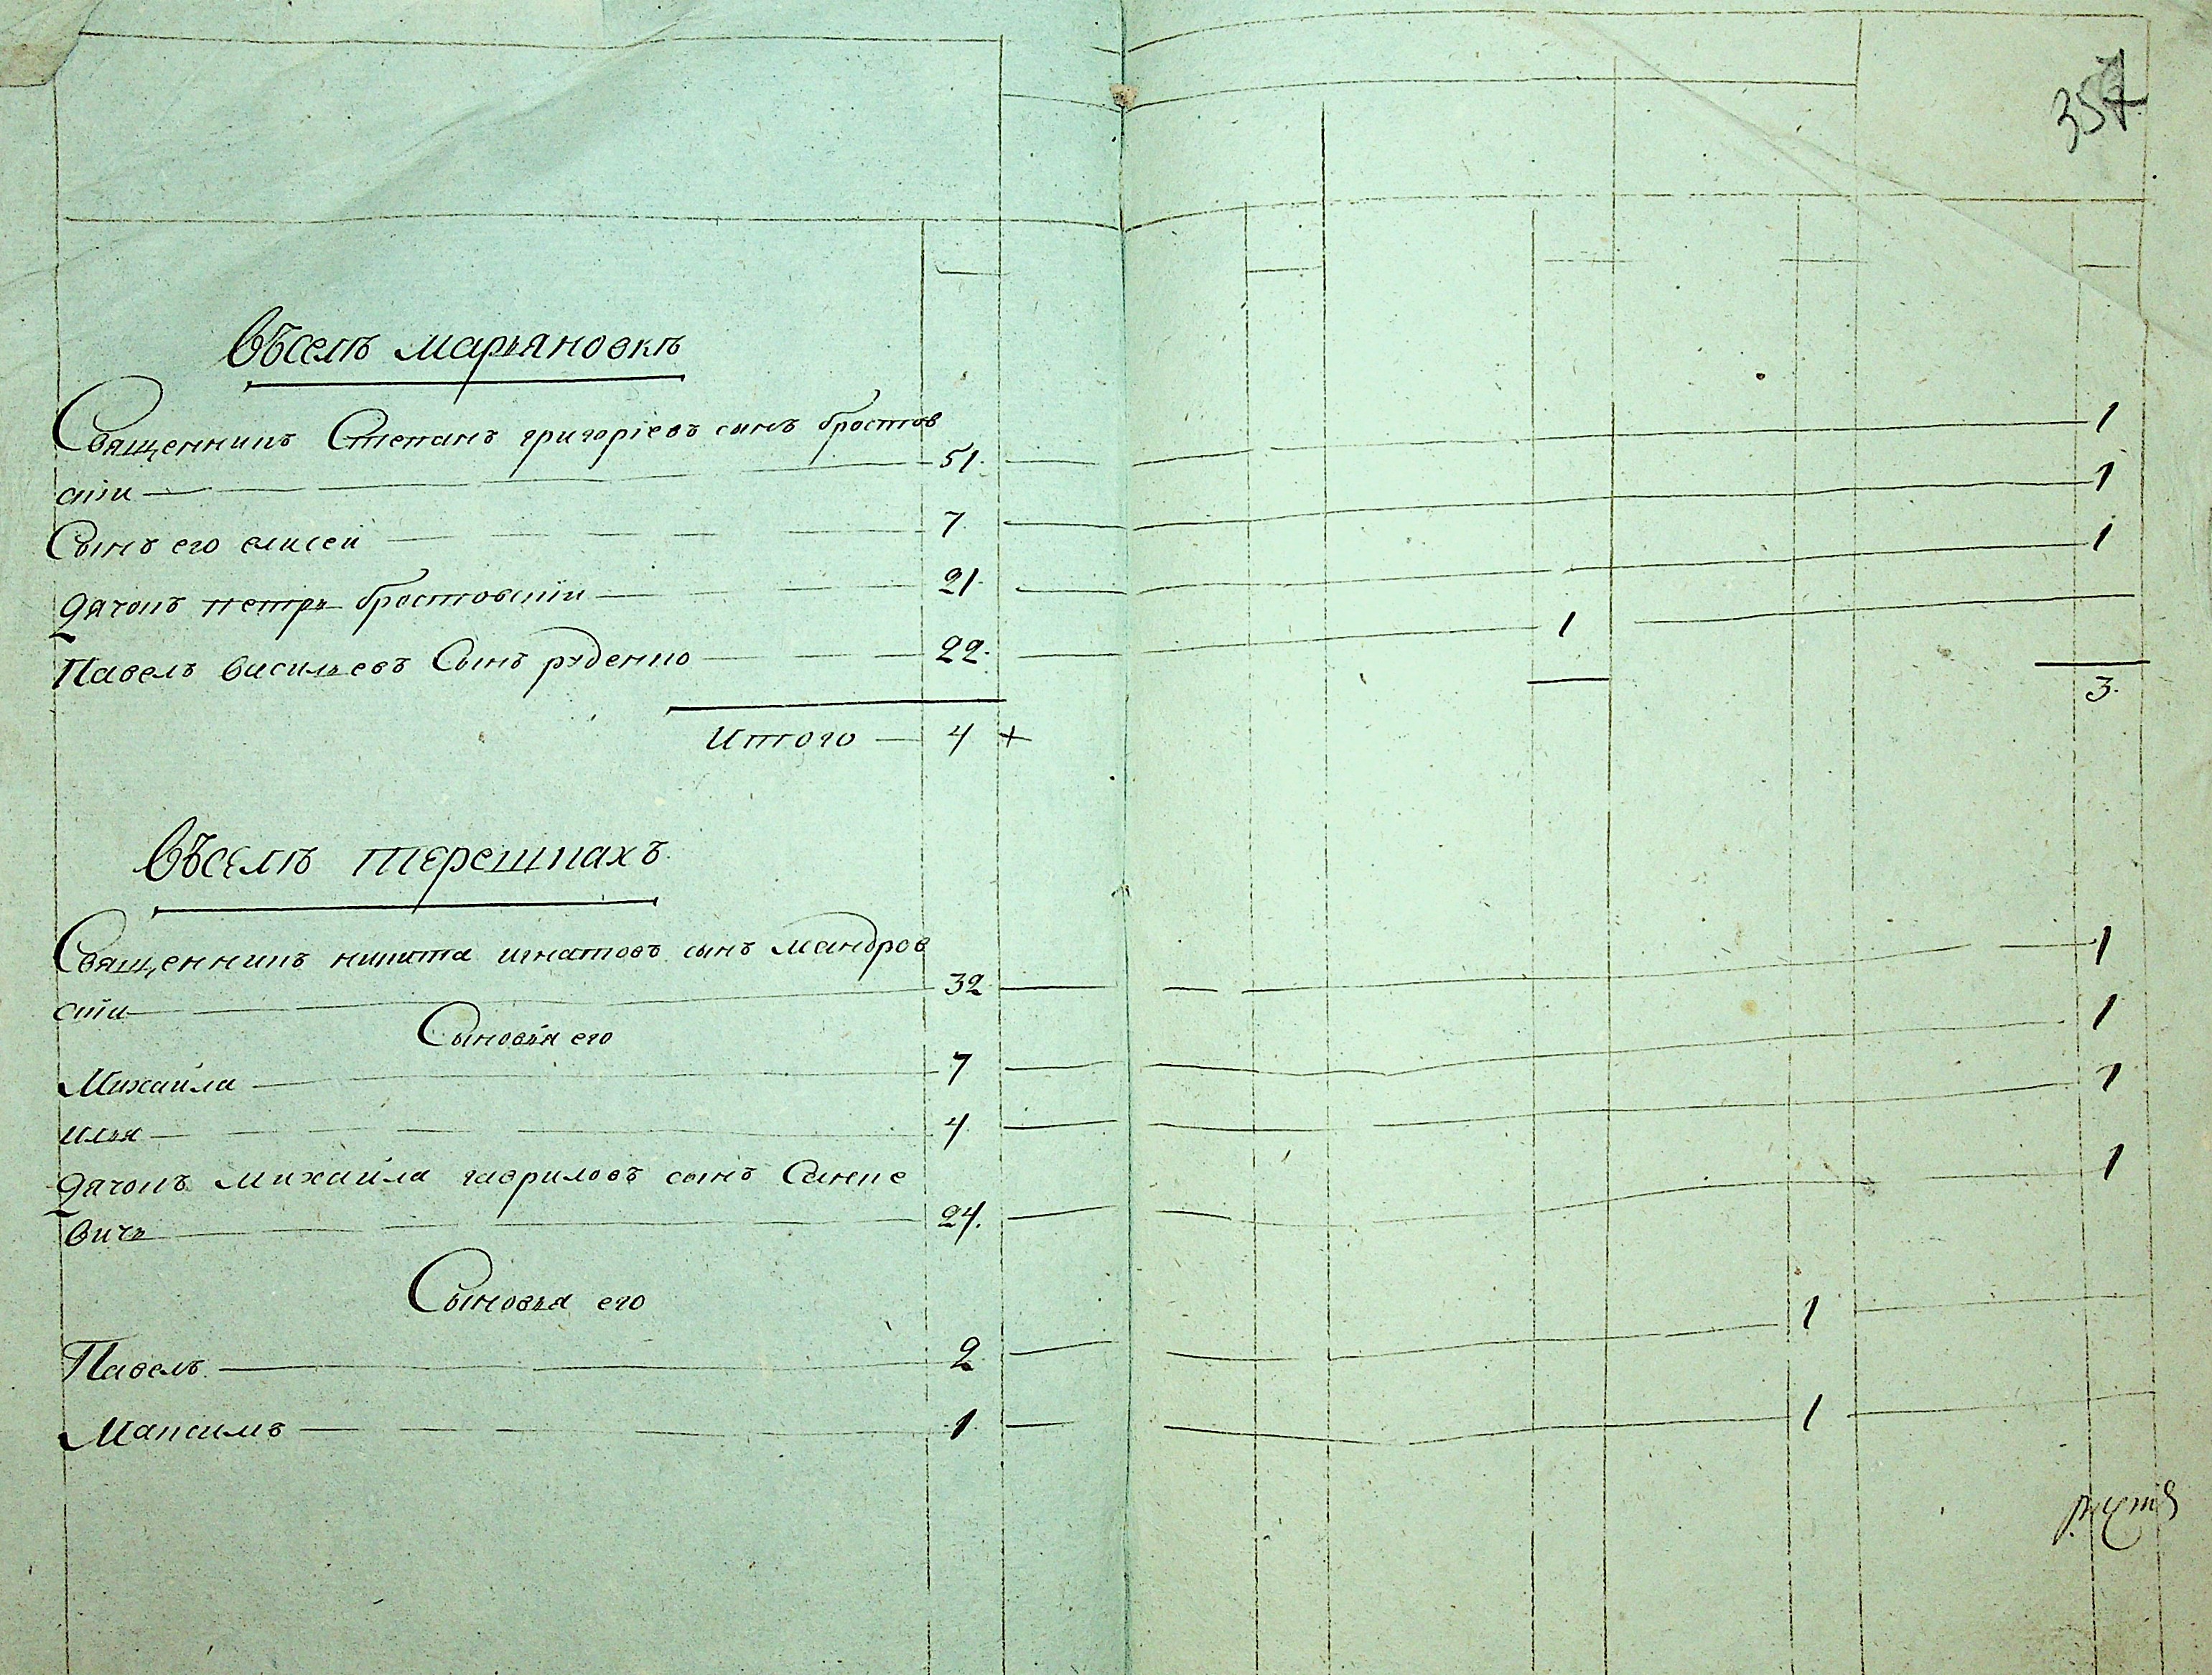 357
Въселѣ марьяновкѣ
Священникъ Степанъ григоріевъ сынъ бростов
скіи — 51. 1
Сынъ его елисей — 7 1
дячокъ петръ бростовскіи — 21. 1
Павелъ васильевъ Сынъ руденко — 22. 1
3.
Итого — 4 +
Въселѣ терешкахъ
Священникъ никита игнатовъ сынъ мандров
скіи — 32 1
Сыновья его
Михайла — 7 1
илья — 4 1
дячокъ михайла гавриловъ сынъ Санке
вичь — 24. 1
Сыновья его
Павелъ — 2 1
Максимъ — 1 1